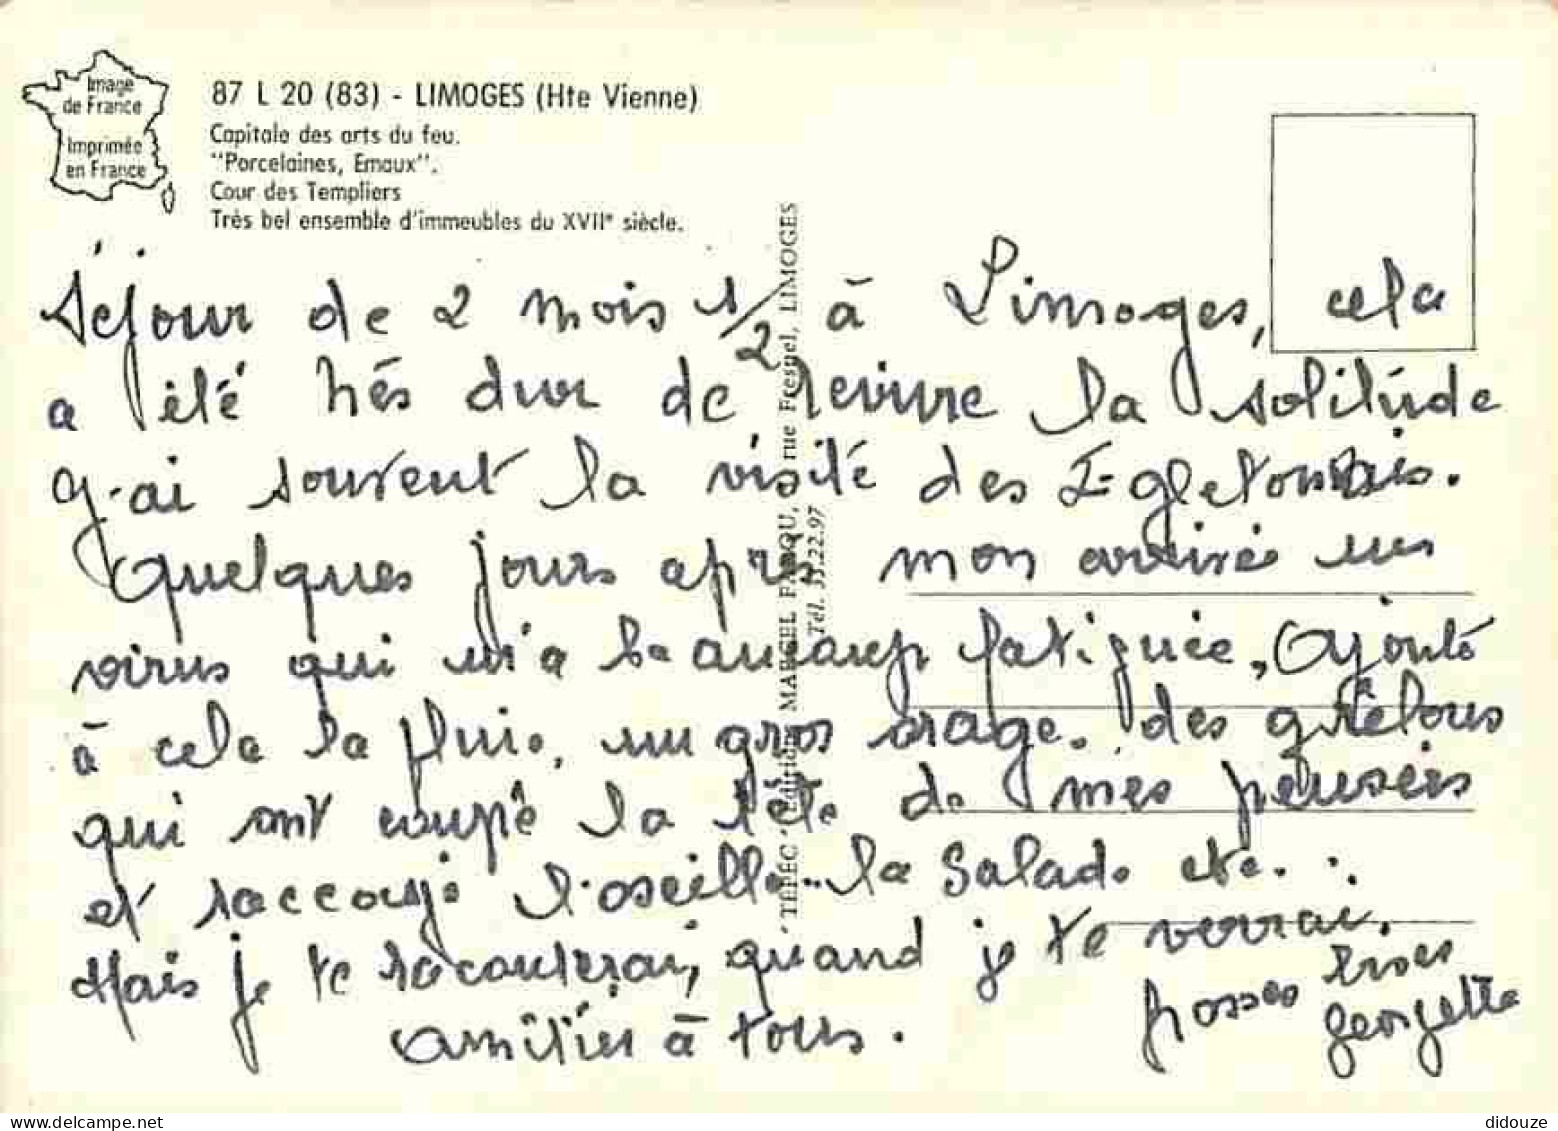 Image
de France
Imprimée
en France
87 L 20 (83) - LIMOGES (Hte Vienne)
Capitale des arts du feu.
"Porcelaines, Emaux".
Cour des Templiers
Très bel ensemble d'immeubles du XVIIe siècle.
Séjour de 2 mois 1/2 à Limoges, cela
a été très dur de revivre la solitude
J'ai souvent la visité des Egletonnais.
Quelques jours après mon arrivée un
virus qui m'a beaucoup fatiguée, Ajouté
à cela la pluie, un gros orage. des grêlons
qui ont coupé la tête de mes pensées
et saccagé l'oseille.. la Salade etc...
Mais je te raconterai, quand je te verrai.
Amitiés à tous.
grosses bises
georgette
TEPEC Editions MARCEL FARQU, rue Fresnel, LIMOGES
Tél. 33.22.97
didouze